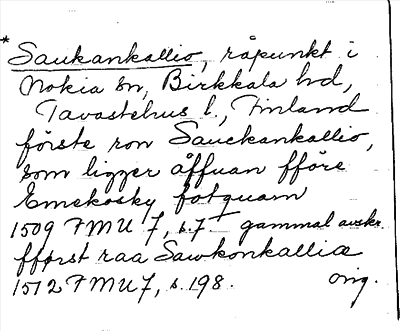 * Saukankallio, råpunkt i
Nokia sn, Birkkala hd,
Tavastehus l., Finland
förste ron Sauckankallio,
som ligger åffuan fföre
Emekosky fotquarn
1509 FMU 7, s. 7 – gammal avskr.
fførst raa Sawkonkalliæ
1512 FMU 7, s. 198. orig.